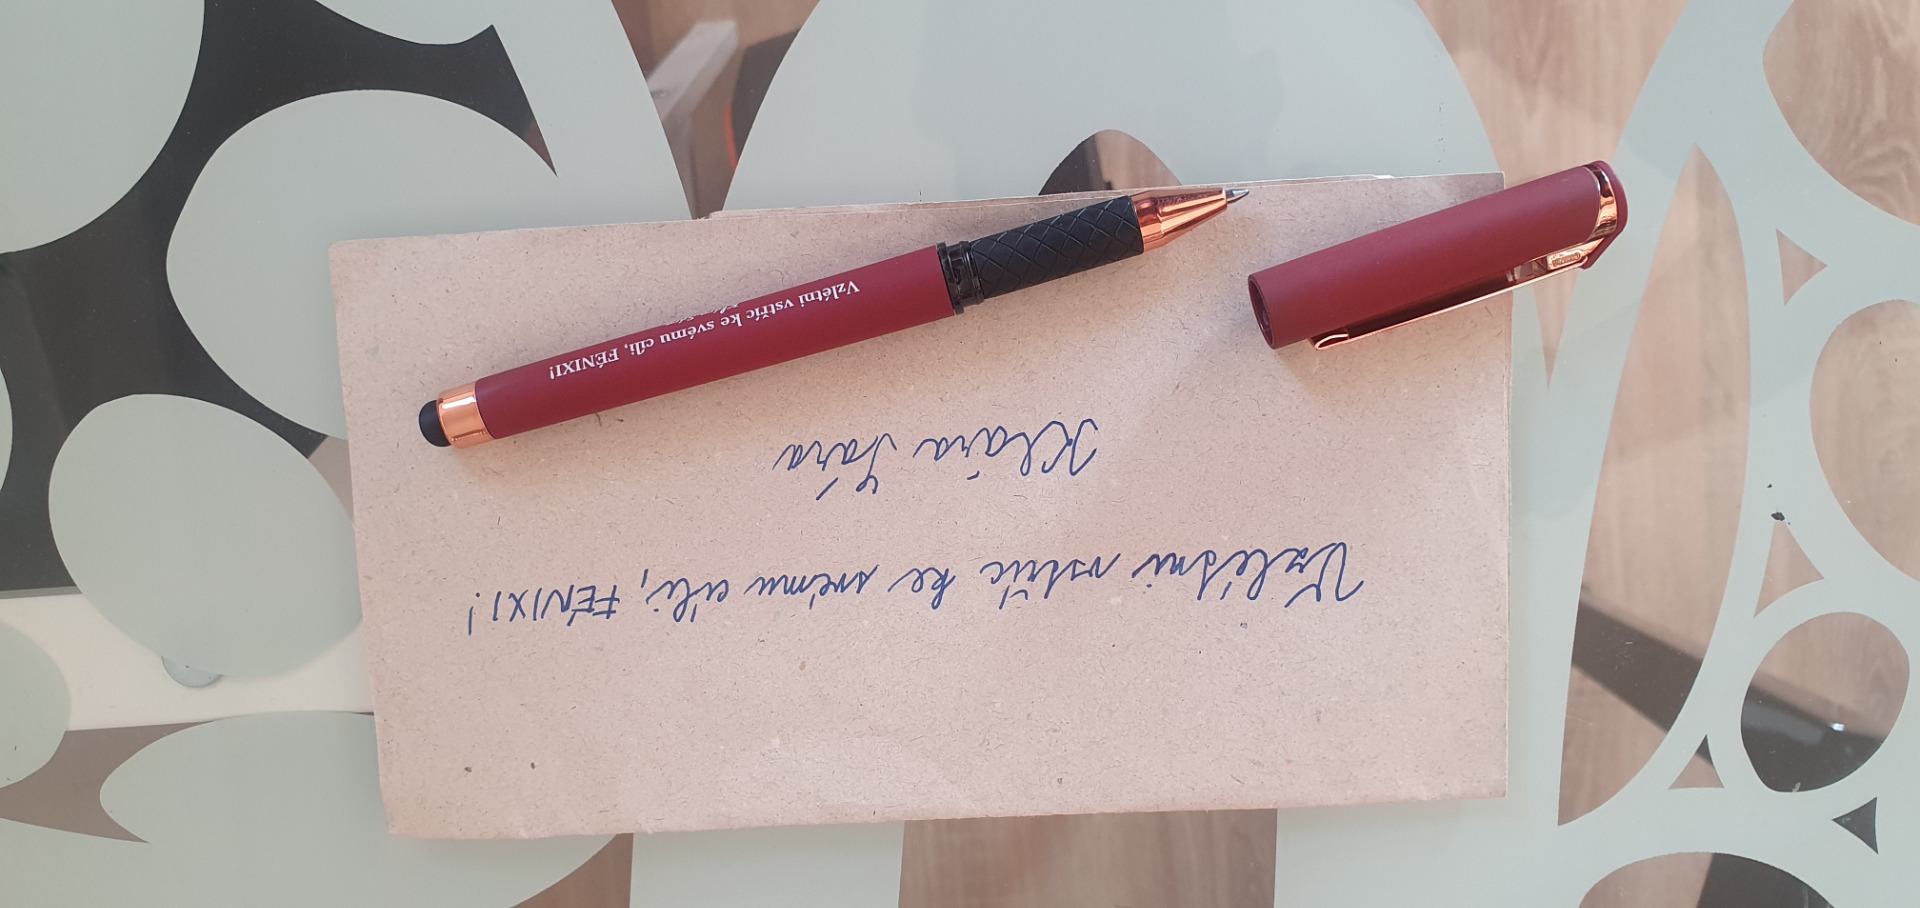 Vzlétni vstříc ke svému cíli, FÉNIXI!
Klára
Vzlétni vstříc ke svému cíli, FÉNIXI!